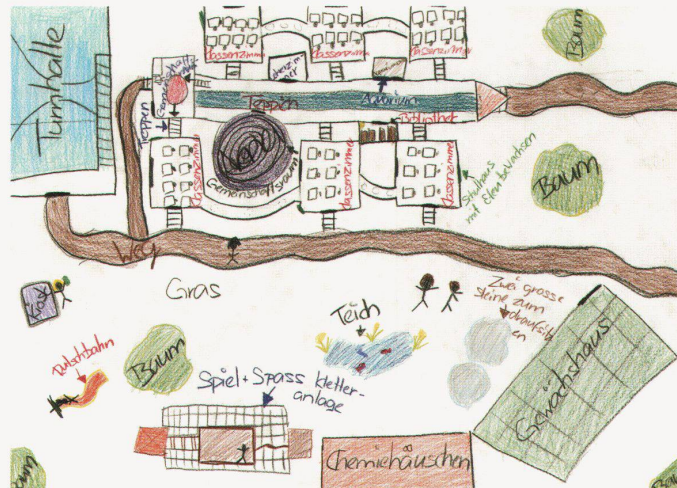 Klassenzimmer
Klassenzimmer
Klassenzimmer
Baum
Turnhalle
Treppen
Teppich
Aquarium
Bibliothek
Gemeinschaftsraum
Klassenzimmer
Klassenzimmer
Klassenzimmer
Schulhaus
mit Efeu bewachsen
Baum
Weg
Gras
Kiosk
Teich
Zwei grosse
steine zum
draufsitz
en
Rutschbahn
Baum
Spiel+Spass kletter-
anlage
Gewächshaus
Chemiehäuschen
Baum